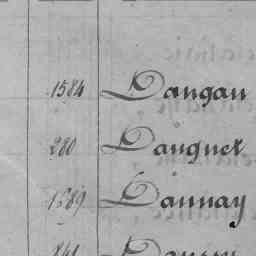 1584 Dangau
280 Danguet
1389 Dannay